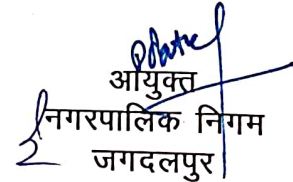 आयुक्त
नगरपालिक निगम
जगदलपुर